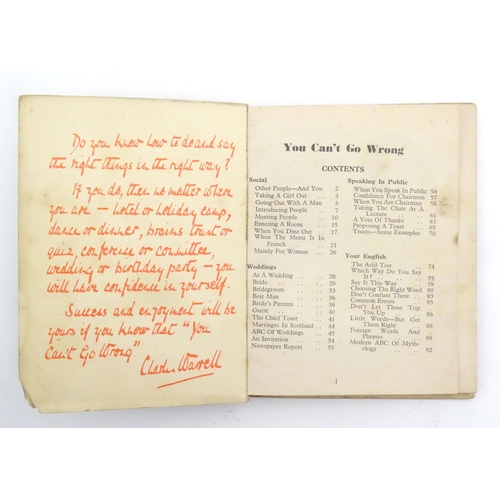 Do you know how to do and say
the right things in the right way?
If you do, then no matter where
you are – hotel or holiday camp,
dance or dinner, brains trust or
quiz, conference or committee,
wedding or birthday party – you
will have confidence in yourself.
Success and enjoyment will be
yours if you know that "You
Can't Go Wrong."
Charles Warrell
You Can't Go Wrong
CONTENTS
Social
Other People—And You 2
Taking A Girl Out .. 3
Going Out With A Man 5
Introducing People .. 7
Meeting People .. 10
Entering A Room .. 15
When You Dine Out .. 17
When The Menu Is In
French .. .. 21
Mainly For Women .. 26
Weddings
At A Wedding .. .. 28
Bride .. .. .. 29
Bridegroom .. .. 33
Best Man .. .. 36
Bride's Parents .. 38
Guest .. .. .. 40
The Chief Toast .. 41
Marriages In Scotland .. 44
ABC Of Weddings .. 46
An Invitation .. .. 54
Newspaper Report .. 55
Speaking In Public
When You Speak In Public 56
Confidence For Chairmen 57
When You Are Chairman 58
Taking The Chair At A
Lecture .. .. 61
A Vote Of Thanks .. 63
Proposing A Toast .. 65
Toasts—Some Examples 70
Your English
The Acid Test .. 74
Which Way Do You Say
It? .. .. .. 75
Say It This Way .. 79
Choosing The Right Word 80
Don't Confuse These .. 83
Common Errors .. 85
Don't Let These Trip
You Up .. .. 88
Little Words—But Get
Them Right .. 88
Foreign Words And
Phrases .. .. 89
Modern ABC Of Myth-
ology .. .. 92
1